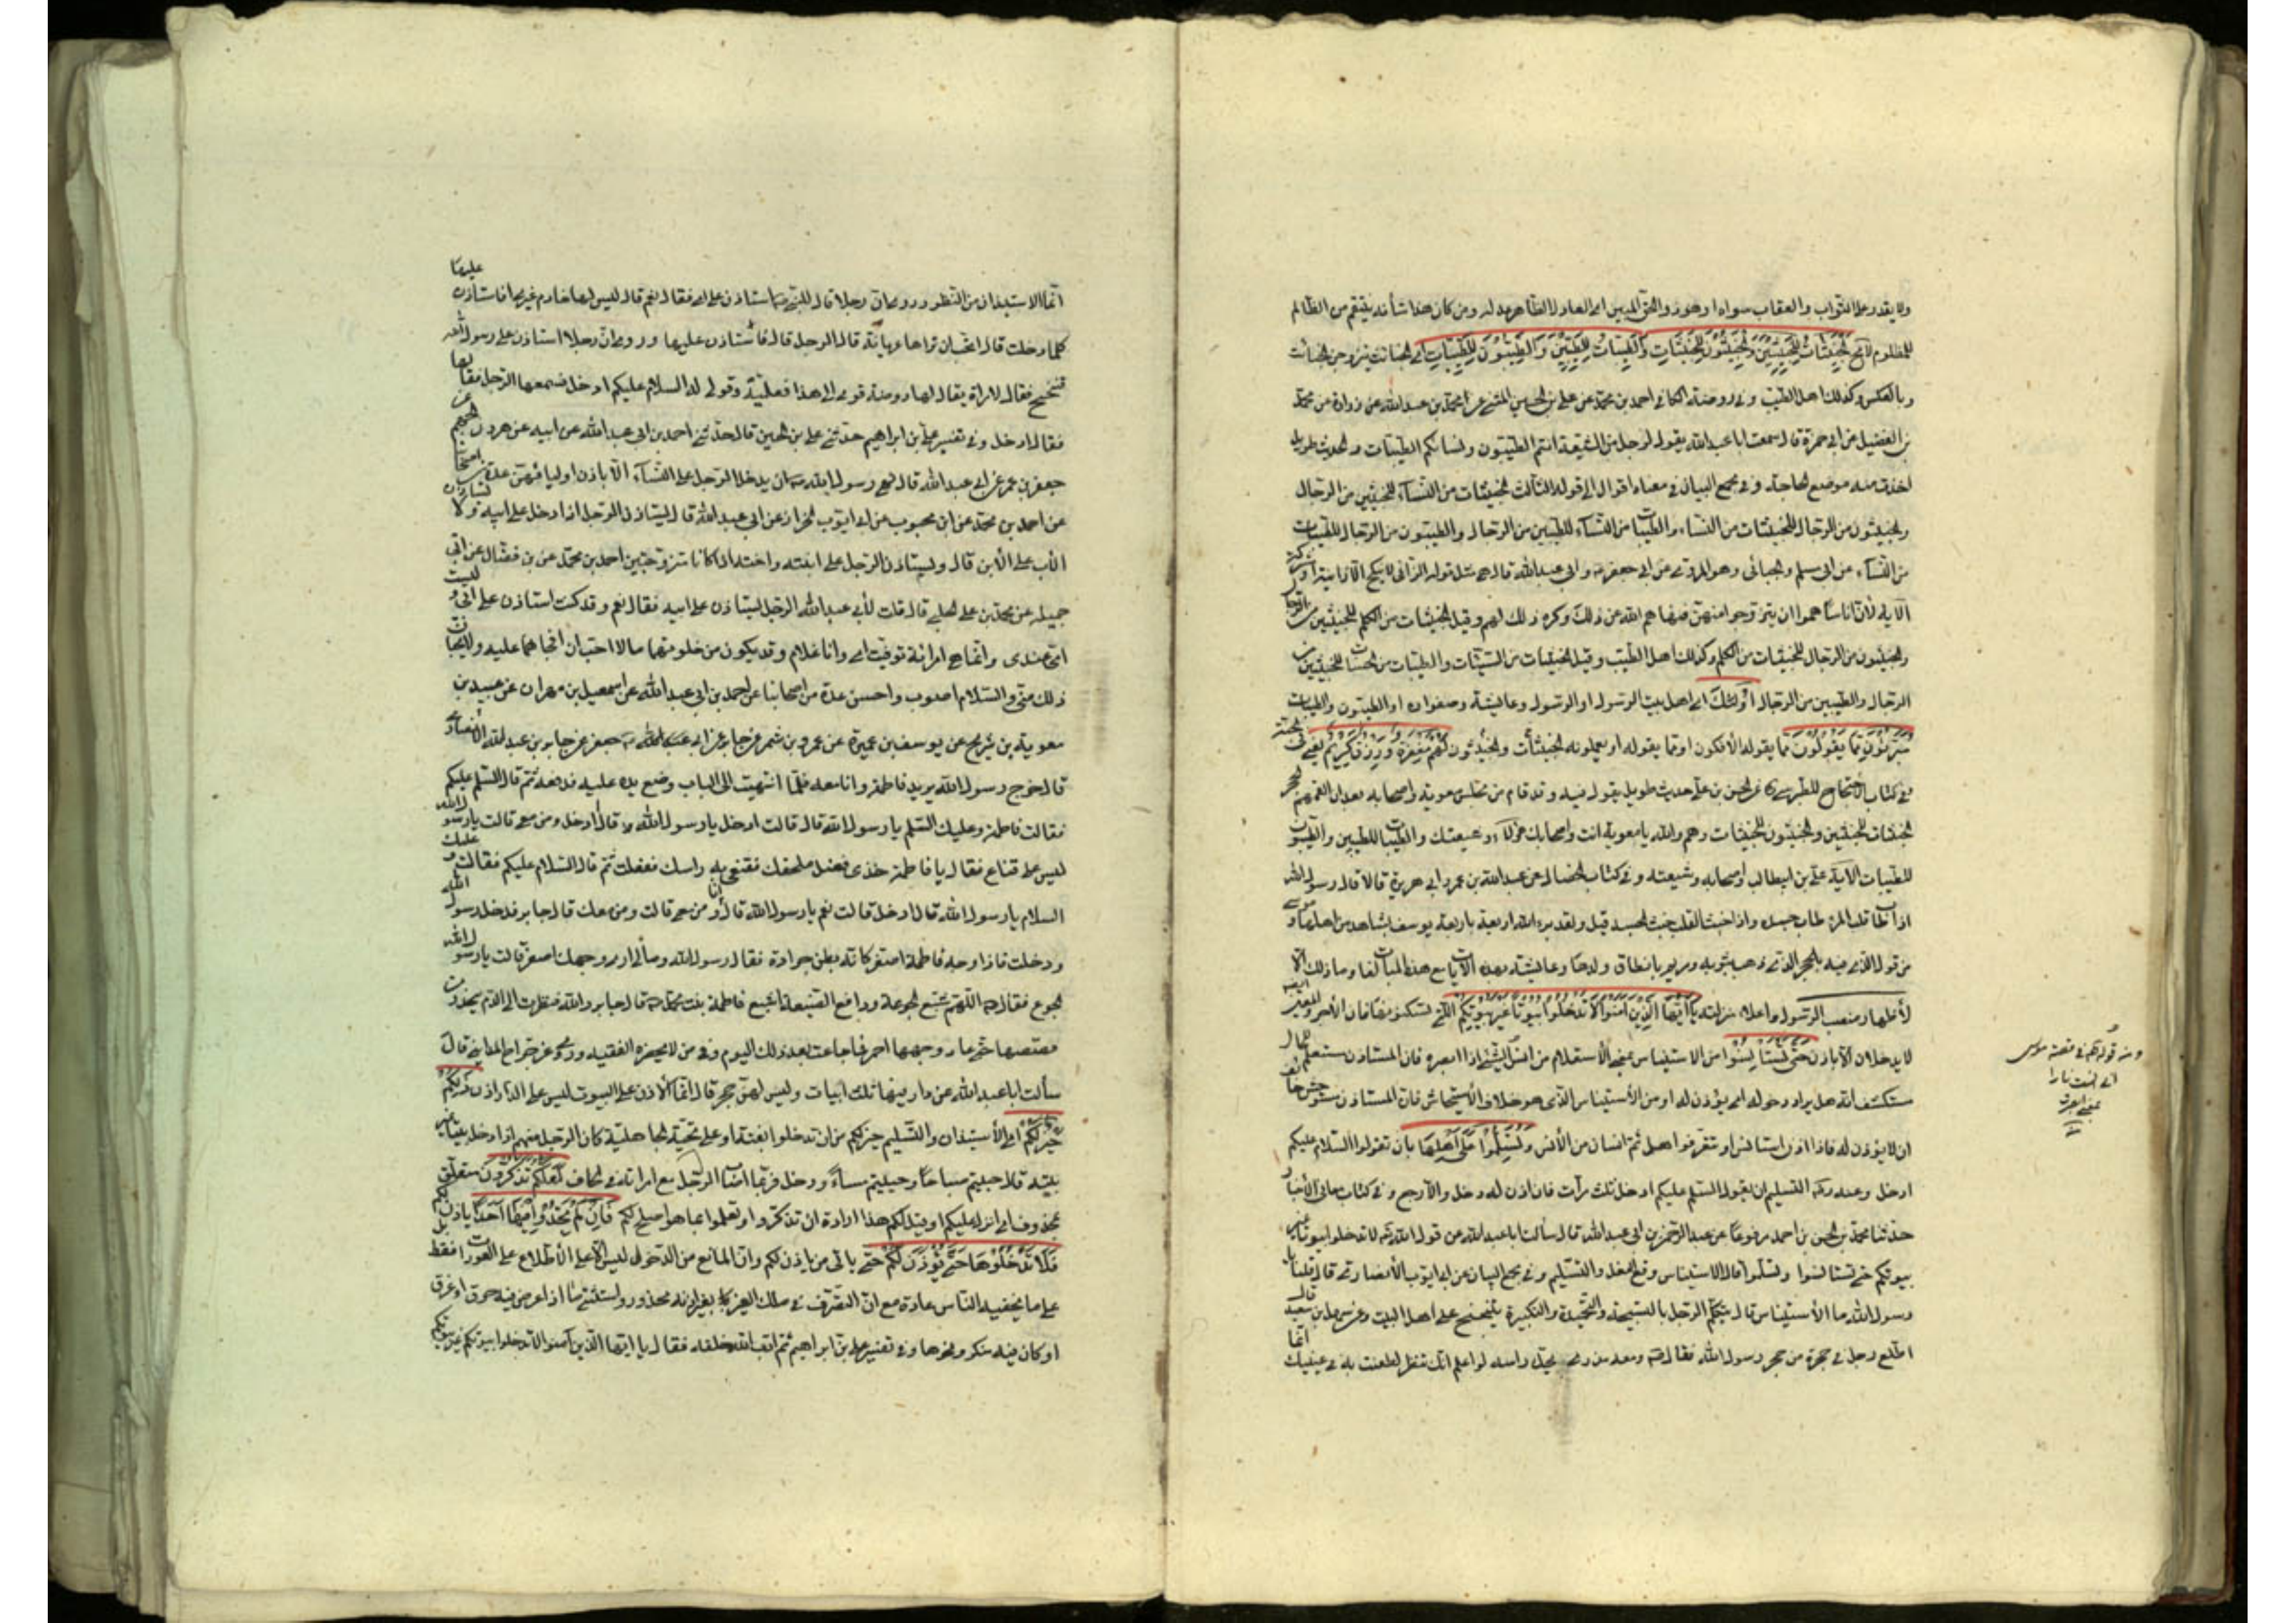 ولا يقدر على الثواب والعقاب سواه او هو ذو الحق المبين اى العادل الظاهر عدله ومن كان هذا شأنه ينتقم من الظالم
للمظلوم لا مح الخبيثات للخبيثين والخبيثون للخبيثات والطيبات للطيبين والطيبون للطيبات اى الخبائث يتزوجن الخبائث
وبالعكس وكذلك اهل الطيب وفى روضة الكافى احمد بن محمد عن على بن الحسين عن محمد بن عبدالله عن زرارة عن محمد
بن الفضيل عن ابى حمزة قال سمعت ابا عبدالله يقول لرجل من الشيعة انتم الطيبون ونسائكم الطيبات والحديث طويل
اخذت منه موضع الحاجة وفى مجمع البيان فى معناه اقوال الى قوله الثالث الخبيثات من النساء للخبيثين من الرجال
والخبيثون من الرجال للخبيثات من النساء والطيبات من النساء للطيبين من الرجال والطيبون من الرجال للطيبات
من النساء عن ابى مسلم والجبائى وهو المروى عن ابى جعفر وابى عبدالله قالا هى مثل قوله الزانى لا ينكح الا زانية او مشركة
الآية لأن اناسا هموا ان يتزوجوا منهن فنهاهم الله عن ذلك وكره ذلك لهم وقيل الخبيثات من الكلم للخبيثين من الرجال
والخبيثون من الرجال للخبيثات من الكلم وكذلك اهل الطيب وقيل الخبيثات من السيئات والطيبات من الحسنات للخبيثين من
الرجال والطيبين من الرجال اولئك اى اهل بيت الرسول او الرسول وعايشة وصفوان او الطيبون والطيبات
مبرؤن مما يقولون مما يقوله الآفكون او مما يقوله او يعملونه الخبيثات والخبيثون لهم مغفرة ورزق كريم يعنى الجنة
وفى كتاب الاحتجاج للطبرسى عن الحسن بن على حديث طويل يقول فيه وقد قام من مجلس معوية واصحابه بعد ان القمهم الحجر
الخبيثات للخبيثين والخبيثون للخبيثات وهم والله يا معوية انت واصحابك هؤلاء وشيعتك والطيبات للطيبين والطيبون
للطيبات الآية على بن ابيطالب واصحابه وشيعته وفى كتاب الخصال عن عبدالله بن عمر وابى هريرة قالا قال رسول الله
اذا طاب قلب المرء طاب جسده واذا خبث القلب خبث الجسد قيل ولقد برء الله اربعة باربعة يوسف بشاهد من اهلها وموسى
من قول اليهود فيه بالحجر الذى ذهب بثوبه ومريم بانطاق ولدها وعايشة بهذه الآيات مع هذه المبالغات وما ذلك الا
لأظهار منصب الرسول واعلاء منزلته يا ايها الذين آمنوا لا تدخلوا بيوتا غير بيوتكم التى تسكنونها فان الآجر والمعير ايضا
لا يدخلان الا باذن حتى تستأنسوا من الاستيناس بمعنى الأستعلام من آنس الشئ اذا ابصره فان المستاذن مستعلم للحال
مستكشف انه هل يراد دخوله ام يؤذن له او من الأستيناس الذى هو خلاف الأستيحاش فان المستاذن مستوحش خائف
ان لا يؤذن له فاذا اذن استانس او تتعرفوا هل ثم انسان من الأنس وتسلموا على اهلها بان تقولوا السلام عليكم
ادخل وعنه التسليم ان يقول السلم عليكم ادخل ثلث مرآت فان اذن له دخل والا رجع وفى كتاب معانى الأخبار
حدثنا محمد بن الحسن بن احمد مرفوعا عن عبد الرحمن بن ابى عبدالله قال سألت ابا عبدالله عن قول الله لا تدخلوا بيوتا غير
بيوتكم حتى تستانسوا وتسلموا قال الاستيناس وقع النعل والتسليم وفى مجمع البيان عن ابى ايوب الأنصارى قال قلنا يا
رسول الله ما الأستيناس قال يتكلم الرجل بالتسبيحة والتحميدة والتكبيرة يتنحنح على اهل البيت وعن سهل بن سعد قال
اطلع رجل فى حجرة من حجر رسول الله فقال ومعه مدرى يحك راسه لو اعلم انك تنظر لطعنت به فى عينيك انما
ومنه قوله فى قصة موسى
انى آنست نارا
بمعنى ابصرت
انما الاستيذان من النظر وروى ان رجلا قال للنبى استاذن على امى فقال نعم قال ليس لها خادم غيرى افاستاذن عليها
كلما دخلت قال اتحب ان تراها عريانة قال الرجل لا قال فاستاذن عليها وروى ان رجلا استاذن على رسول الله
فتنحنح فقال لامراة يقال لها روضة قومى الى هذا فعلميه وقولى له قل السلام عليكم ادخل فسمعها الرجل فقالها
فقال ادخل وفى تفسير على بن ابراهيم حدثنى على بن الحسين قال حدثنى احمد بن ابى عبدالله عن ابيه عن هرون بن الجهم عن
جعفر بن عمر عن ابى عبدالله قال نهى رسول الله ان يدخل الرجل على النساء الا باذن اوليائهن عدة من اصحابنا
عن احمد بن محمد عن ابن محبوب عن ابى ايوب الخزاز عن ابى عبدالله قال ليستاذن الرجل اذا دخل على ابيه ولا يستاذن
الأب على الأبن قال وليستاذن الرجل على ابنته واخته اذا كانتا متزوجتين احمد بن محمد عن بن فضال عن ابى
جميلة عن محمد بن على الحلبى قال قلت لأبى عبدالله الرجل ليستاذن على ابيه فقال نعم وقد كنت استاذن على ابى وليست
امى عندى وانما هى امرأة ابى توفيت امى وانا غلام وقد يكون من خلوتهما ما لا احب ان افجأهما عليه ولا يحبان
ذلك منى والسلام اصوب واحسن عدة من اصحابنا عن احمد بن ابى عبدالله عن اسمعيل بن مهران عن عبيد بن
معوية بن شريح عن يوسف بن عميرة عن عمرو بن شمر عن جابر عن ابى جعفر عن جابر بن عبدالله الأنصارى
قال خرج رسول الله يريد فاطمة وانا معه فلما انتهيت الى الباب وضع يده عليه فدفعه ثم قال السلم عليكم
فقالت فاطمة وعليك السلم يا رسول الله قال ادخل قالت ادخل يا رسول الله قال أدخل ومن معى قالت يا رسول الله
ليس على قناع فقال يا فاطمة خذى فضل ملحفتك فقنعى به راسك ففعلت ثم قال السلام عليكم فقالت وعليك
السلام يا رسول الله قال ادخل قالت نعم يا رسول الله قال انا ومن معى قالت ومن معك قال جابر فدخل رسول الله
ودخلت فاذا وجه فاطمة اصفر كانه بطن جرادة فقال رسول الله ومالى ارى وجهك اصفر قالت يا رسول الله
الجوع فقال اللهم مشبع الجوعة ودافع الضيعة اشبع فاطمة بنت محمد قال جابر والله فنظرت الى الدم ينحدر من
قصصها حتى عاد وجهها احمر فما جاعت بعد ذلك اليوم وفى من لا يحضره الفقيه وروى عن جراح المداينى قال
سألت ابا عبدالله عن دار فيها ثلث ابيات وليس لهن حجر قال انما الأذن على البيوت ليس على الدار اذن ذلكم
خير لكم اى الأستيذان والتسليم خير لكم من ان تدخلوا بغتة او على تحية الجاهلية كان الرجل منهم اذا دخل بيتا غير
بيته قال حييتم صباحا وحييتم مساءً ودخل فربما اصاب الرجل مع امراته فى لحاف لعلكم تذكرون متعلق
بمحذوف اى انزل عليكم او قيل لكم هذا ارادة ان تذكروا وتعملوا بما هو اصلح لكم فان لم تجدوا فيها احدا ياذن لكم
فلا تدخلوها حتى يؤذن لكم حتى ياتى من ياذن لكم وان المانع من الدخول ليس الأطلاع على العورات فقط بل
على ما يخفيه الناس عادة مع ان التصرف فى ملك الغير بغير اذنه محذور واستثنى ما اذا عرض فيه حرق او غرق
او كان فيه منكر ونحوها وفى تفسير على بن ابراهيم ثم ادب الله خلقه فقال يا ايها الذين آمنوا لا تدخلوا بيوتا غير بيوتكم